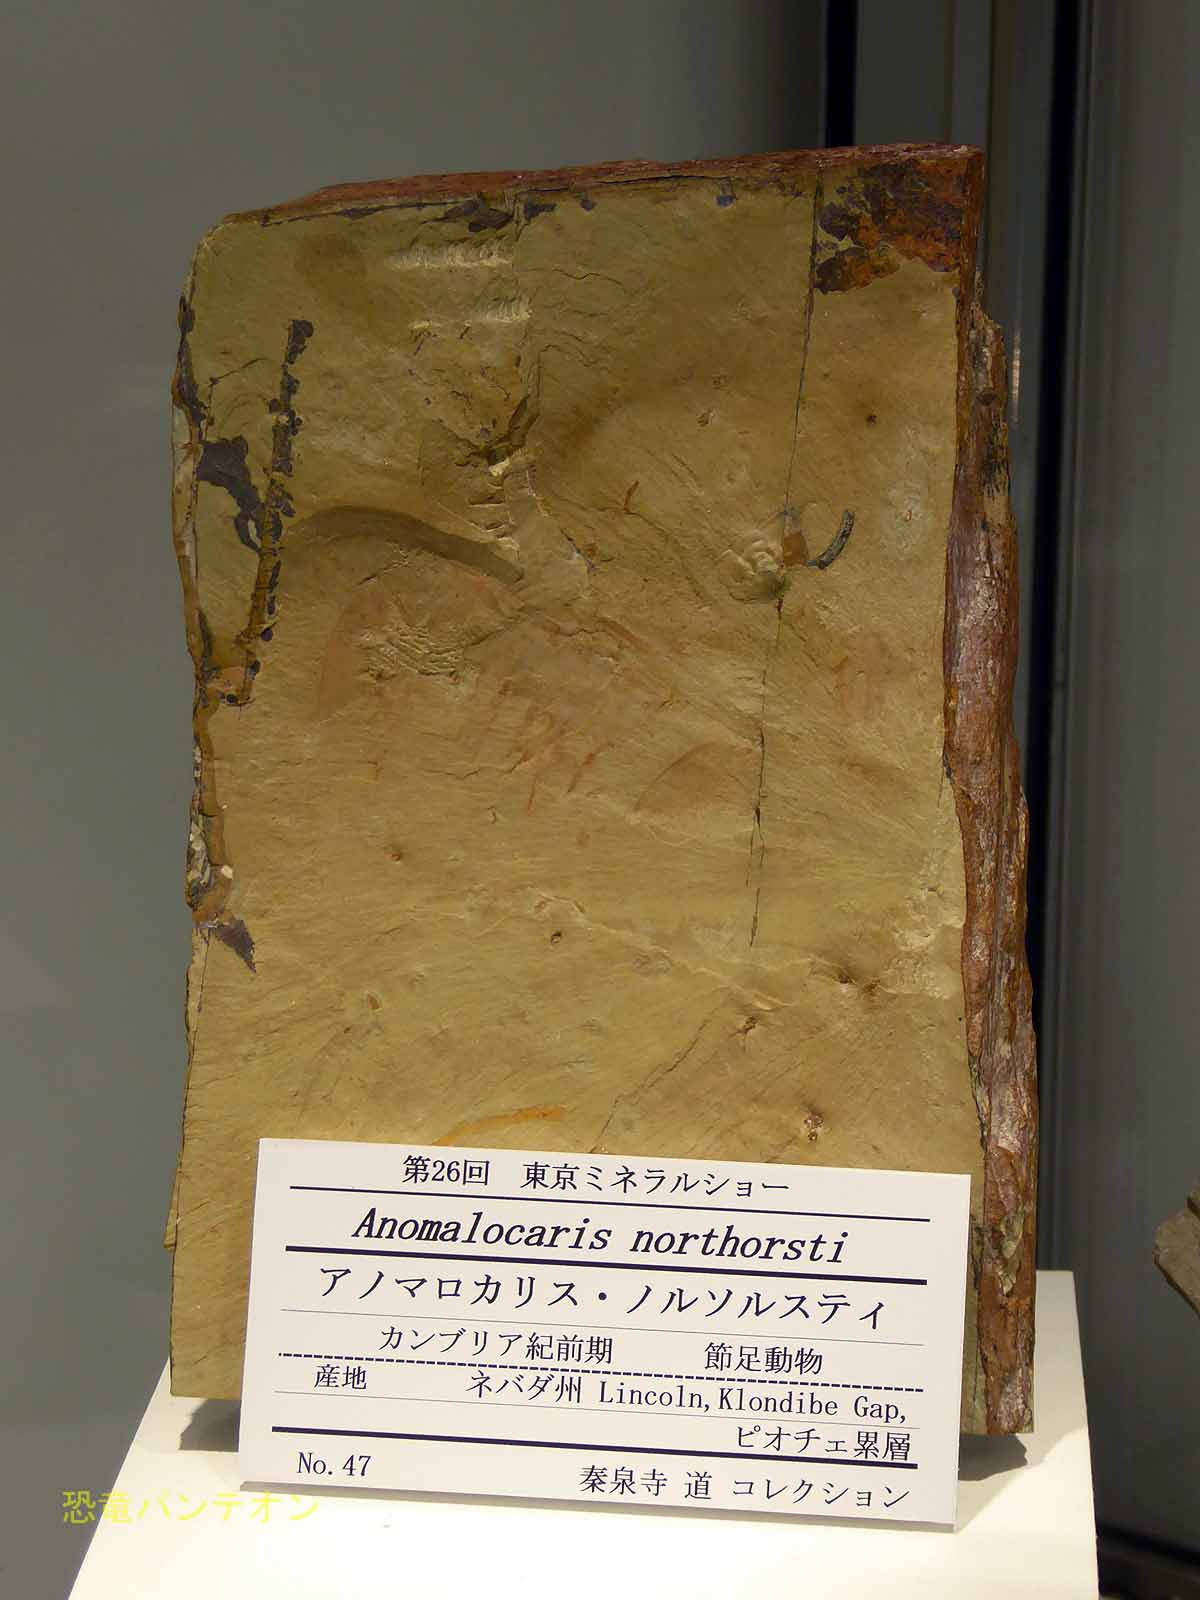 第26回 東京ミネラルショー
Anomalocaris northorsti
アノマロカリス・ノルソルスティ
カンブリア紀前期 節足動物
産地 ネバダ州 Lincoln,Klondibe Gap,
ピオチェ累層
No.47 秦泉寺 道 コレクション
恐竜パンテオン